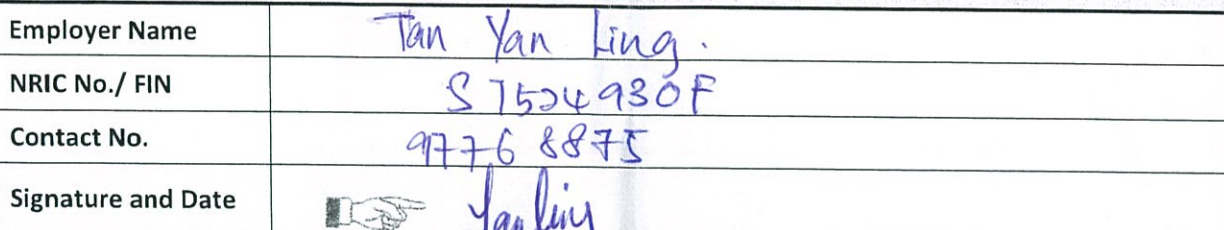 Employer Name Tan Yan Ling.
NRIC No./ FIN S7524930F
Contact No. 9776 8875
Signature and Date Yanling